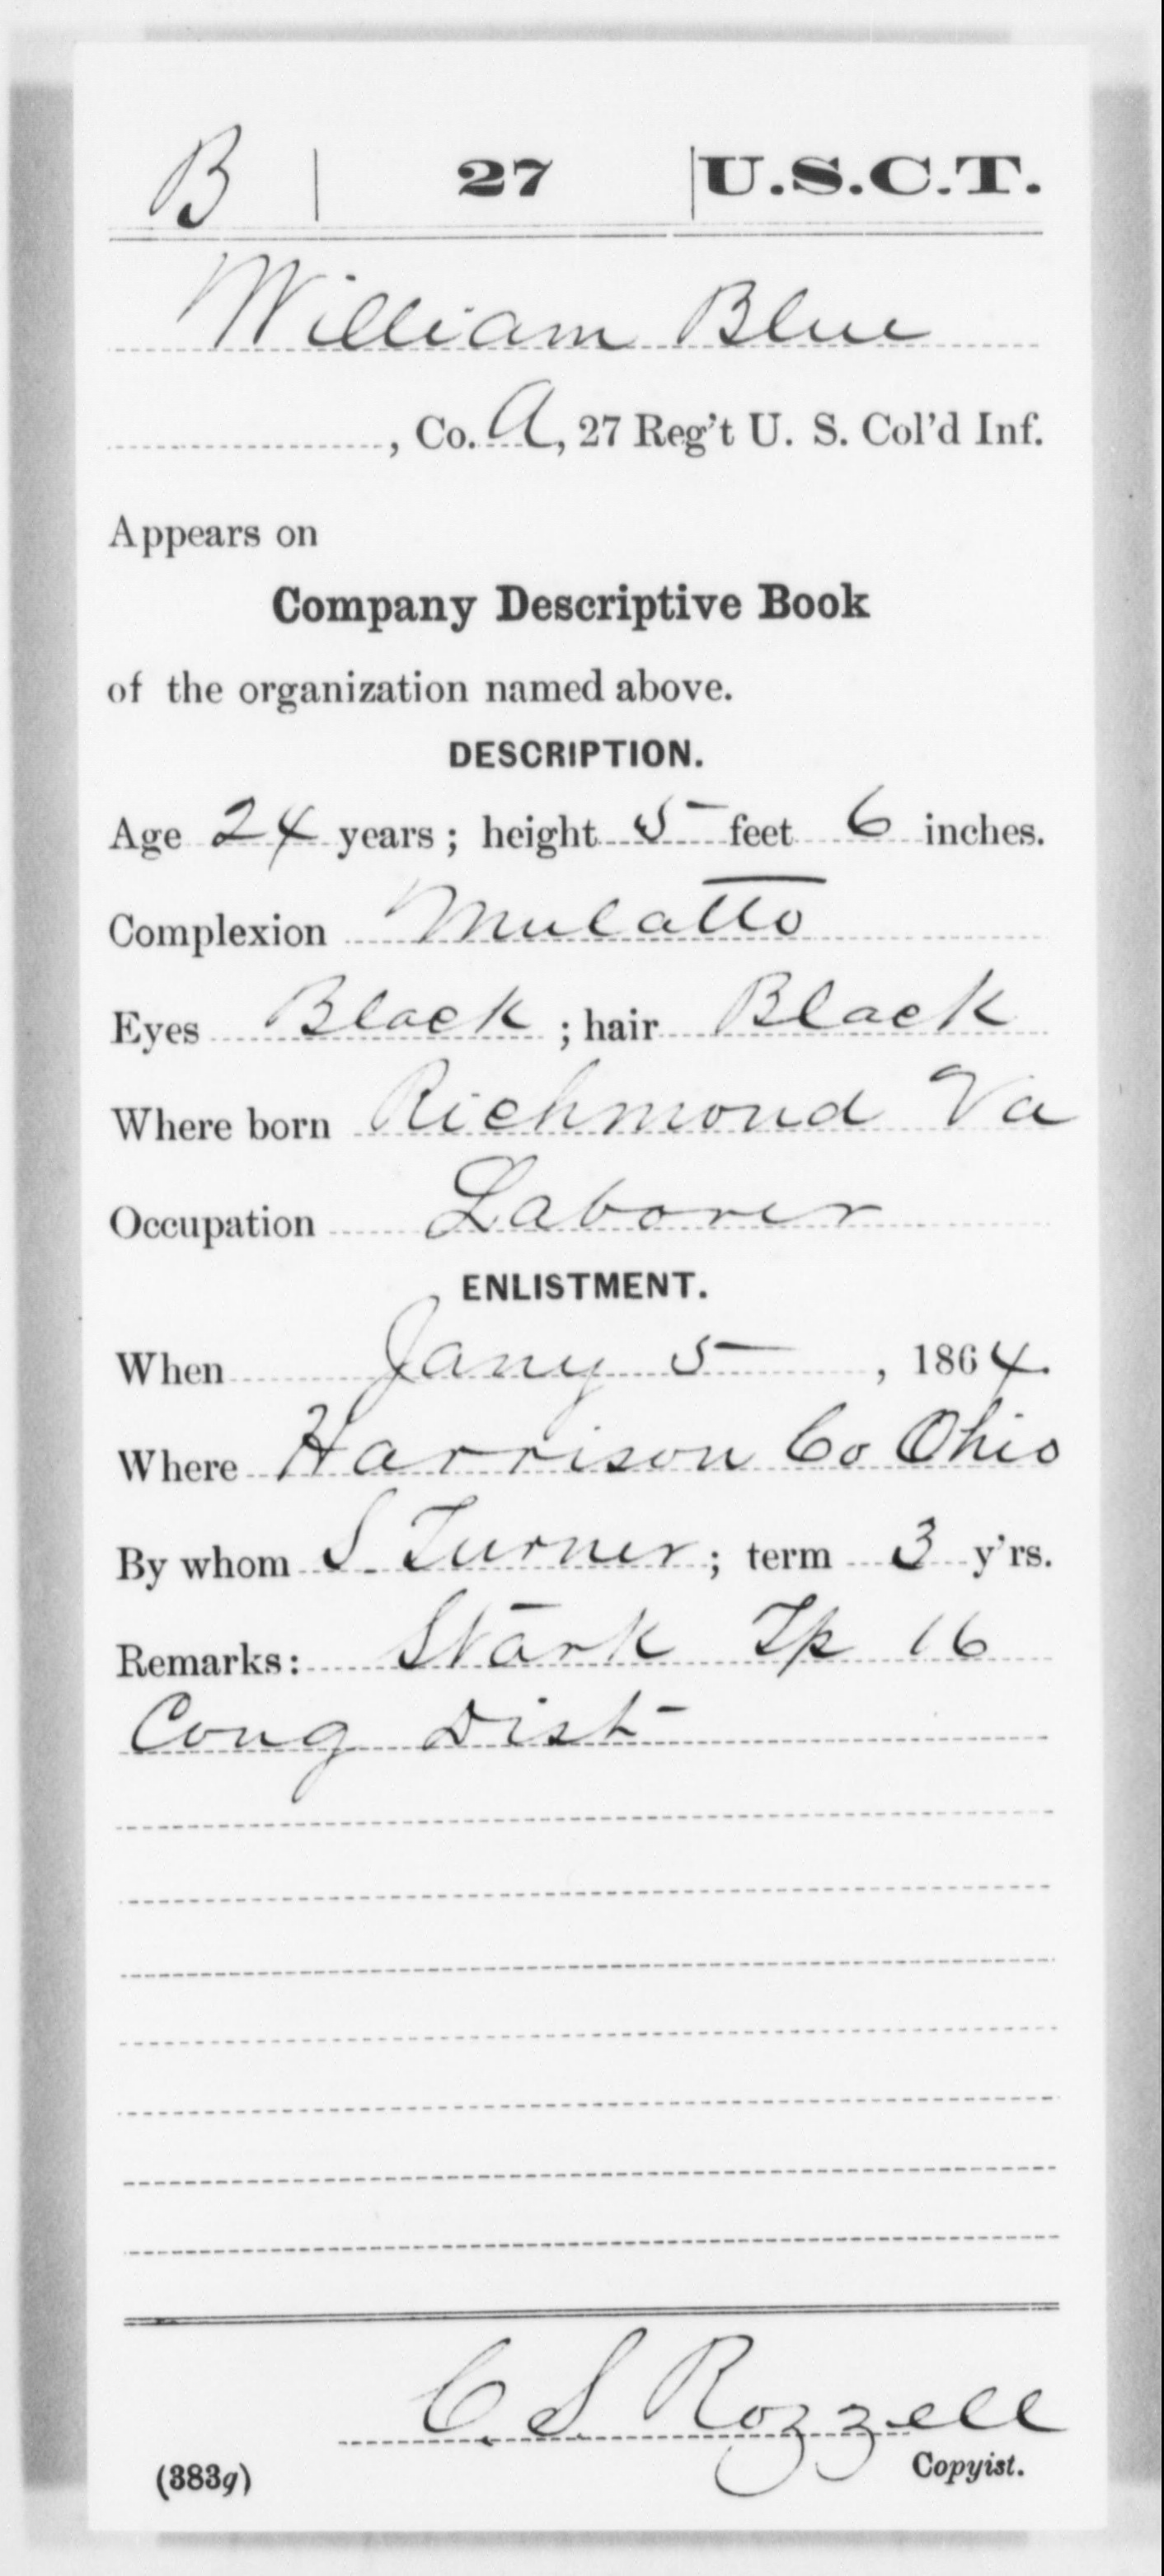 B | 27 | U.S.C.T.
William Blue
, Co. A, 27 Reg't U. S. Col'd Inf.
Appears on
Company Descriptive Book
of the organization named above.
DESCRIPTION.
Age 24 years; height 5 feet 6 inches.
Complexion Mulatto
Eyes Black; hair Black
Where born Richmond Va
Occupation Laborer
ENLISTMENT.
When Jany 5, 1864.
Where Harrison Co Ohio
By whom S. Turner; term 3 y'rs.
Remarks: Stark Tp 16
Cong Dist
C. S Rozzell
(383g) Copyist.